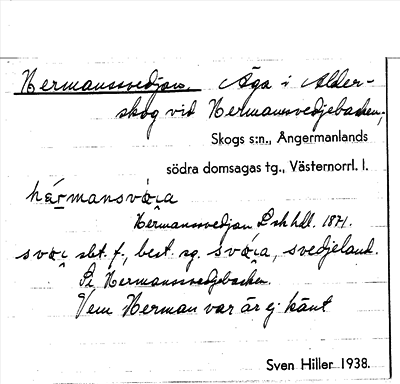 Hermanssvedjan. Äga i Alder-
skog vid Hermanssvedjebacken,
Skogs s:n., Ångermanlands
södra domsagas tg., Västernorrl. l.
hærmansvöi̯a
Hermanssvedjan L sk hdl. 1871.
svöi̯ slt. f., best. sg. svöi̯a, svedjeland.
Se Hermanssvedjebacken.
Vem Herman var är ej känt
Sven Hiller 1938.